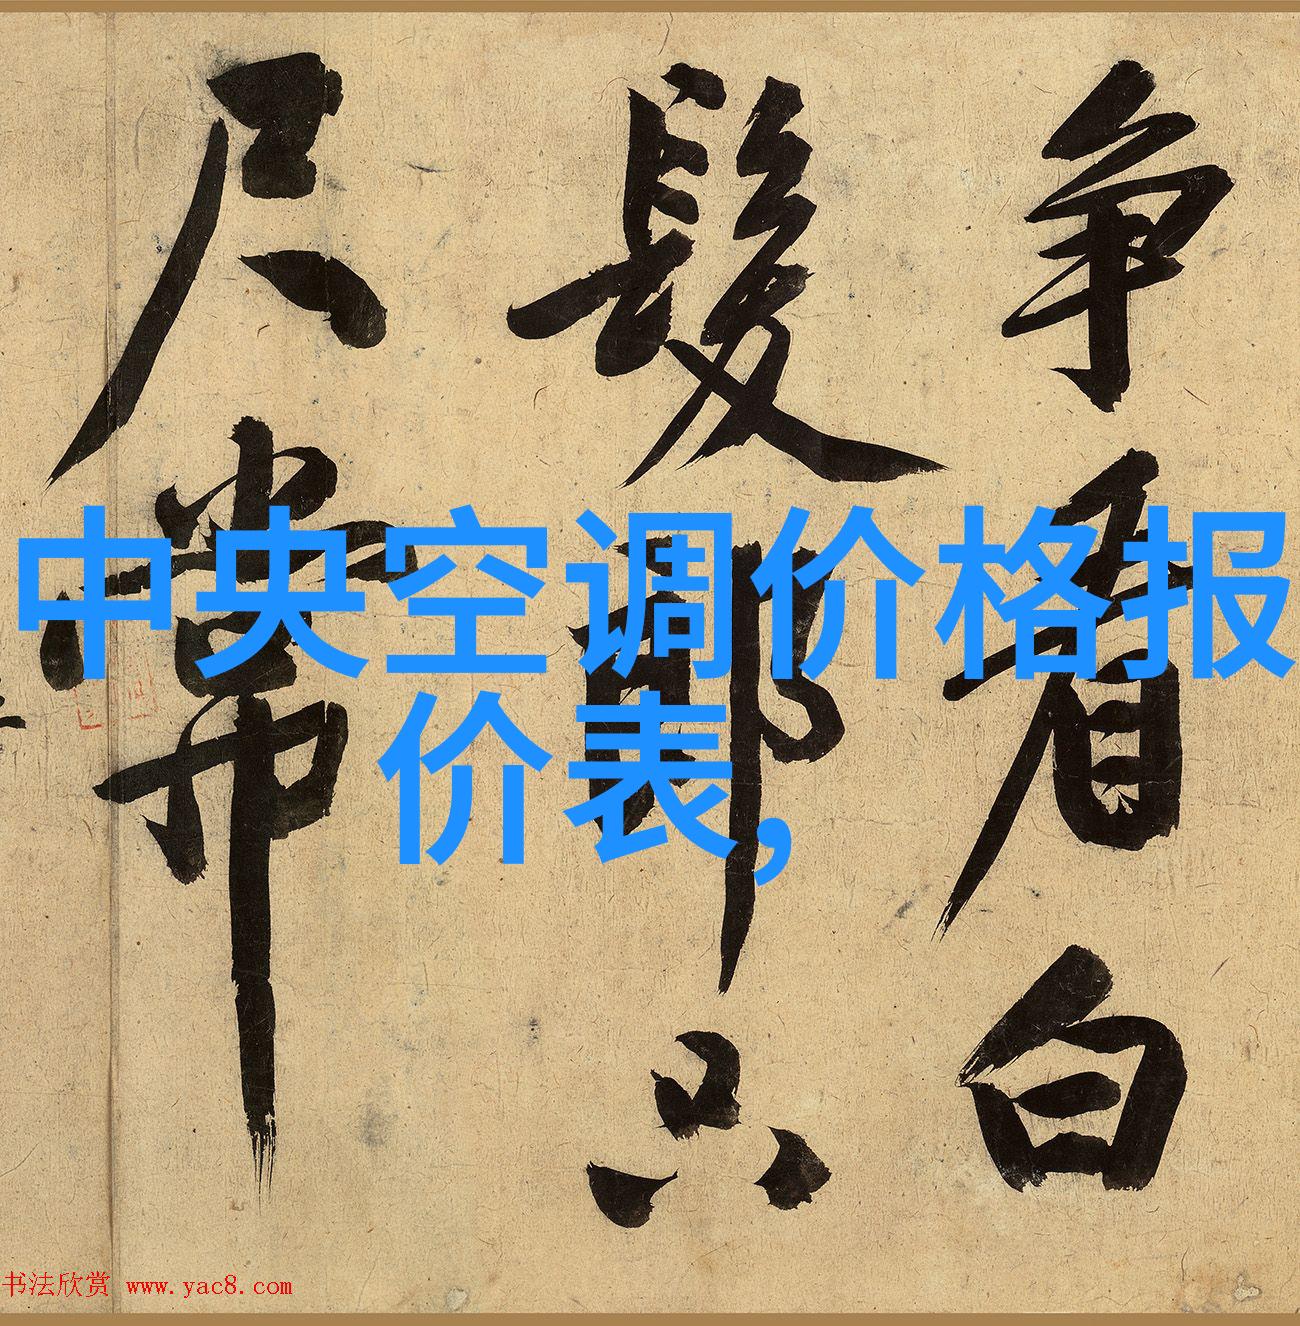 争看白
髮郎只
尺常
中央空调价格报
价表,
书法欣赏 www.yac8.com